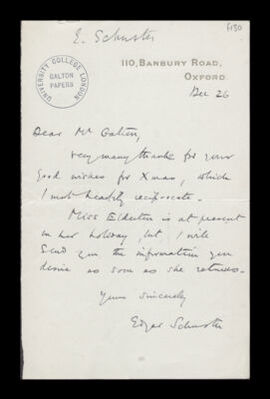 E. Schuster
f130
UNIVERSITY COLLEGE LONDON
GALTON
PAPERS
110, BANBURY ROAD,
OXFORD.
Dec 26
Dear Mr Galton,
Very many thanks for your
good wishes for Xmas, which
I most heartily reciprocate.
Miss Elderton is at present
on her holiday, but I will
send you the information you
desire as soon as she returns.
Yours sincerely
Edgar Schuster